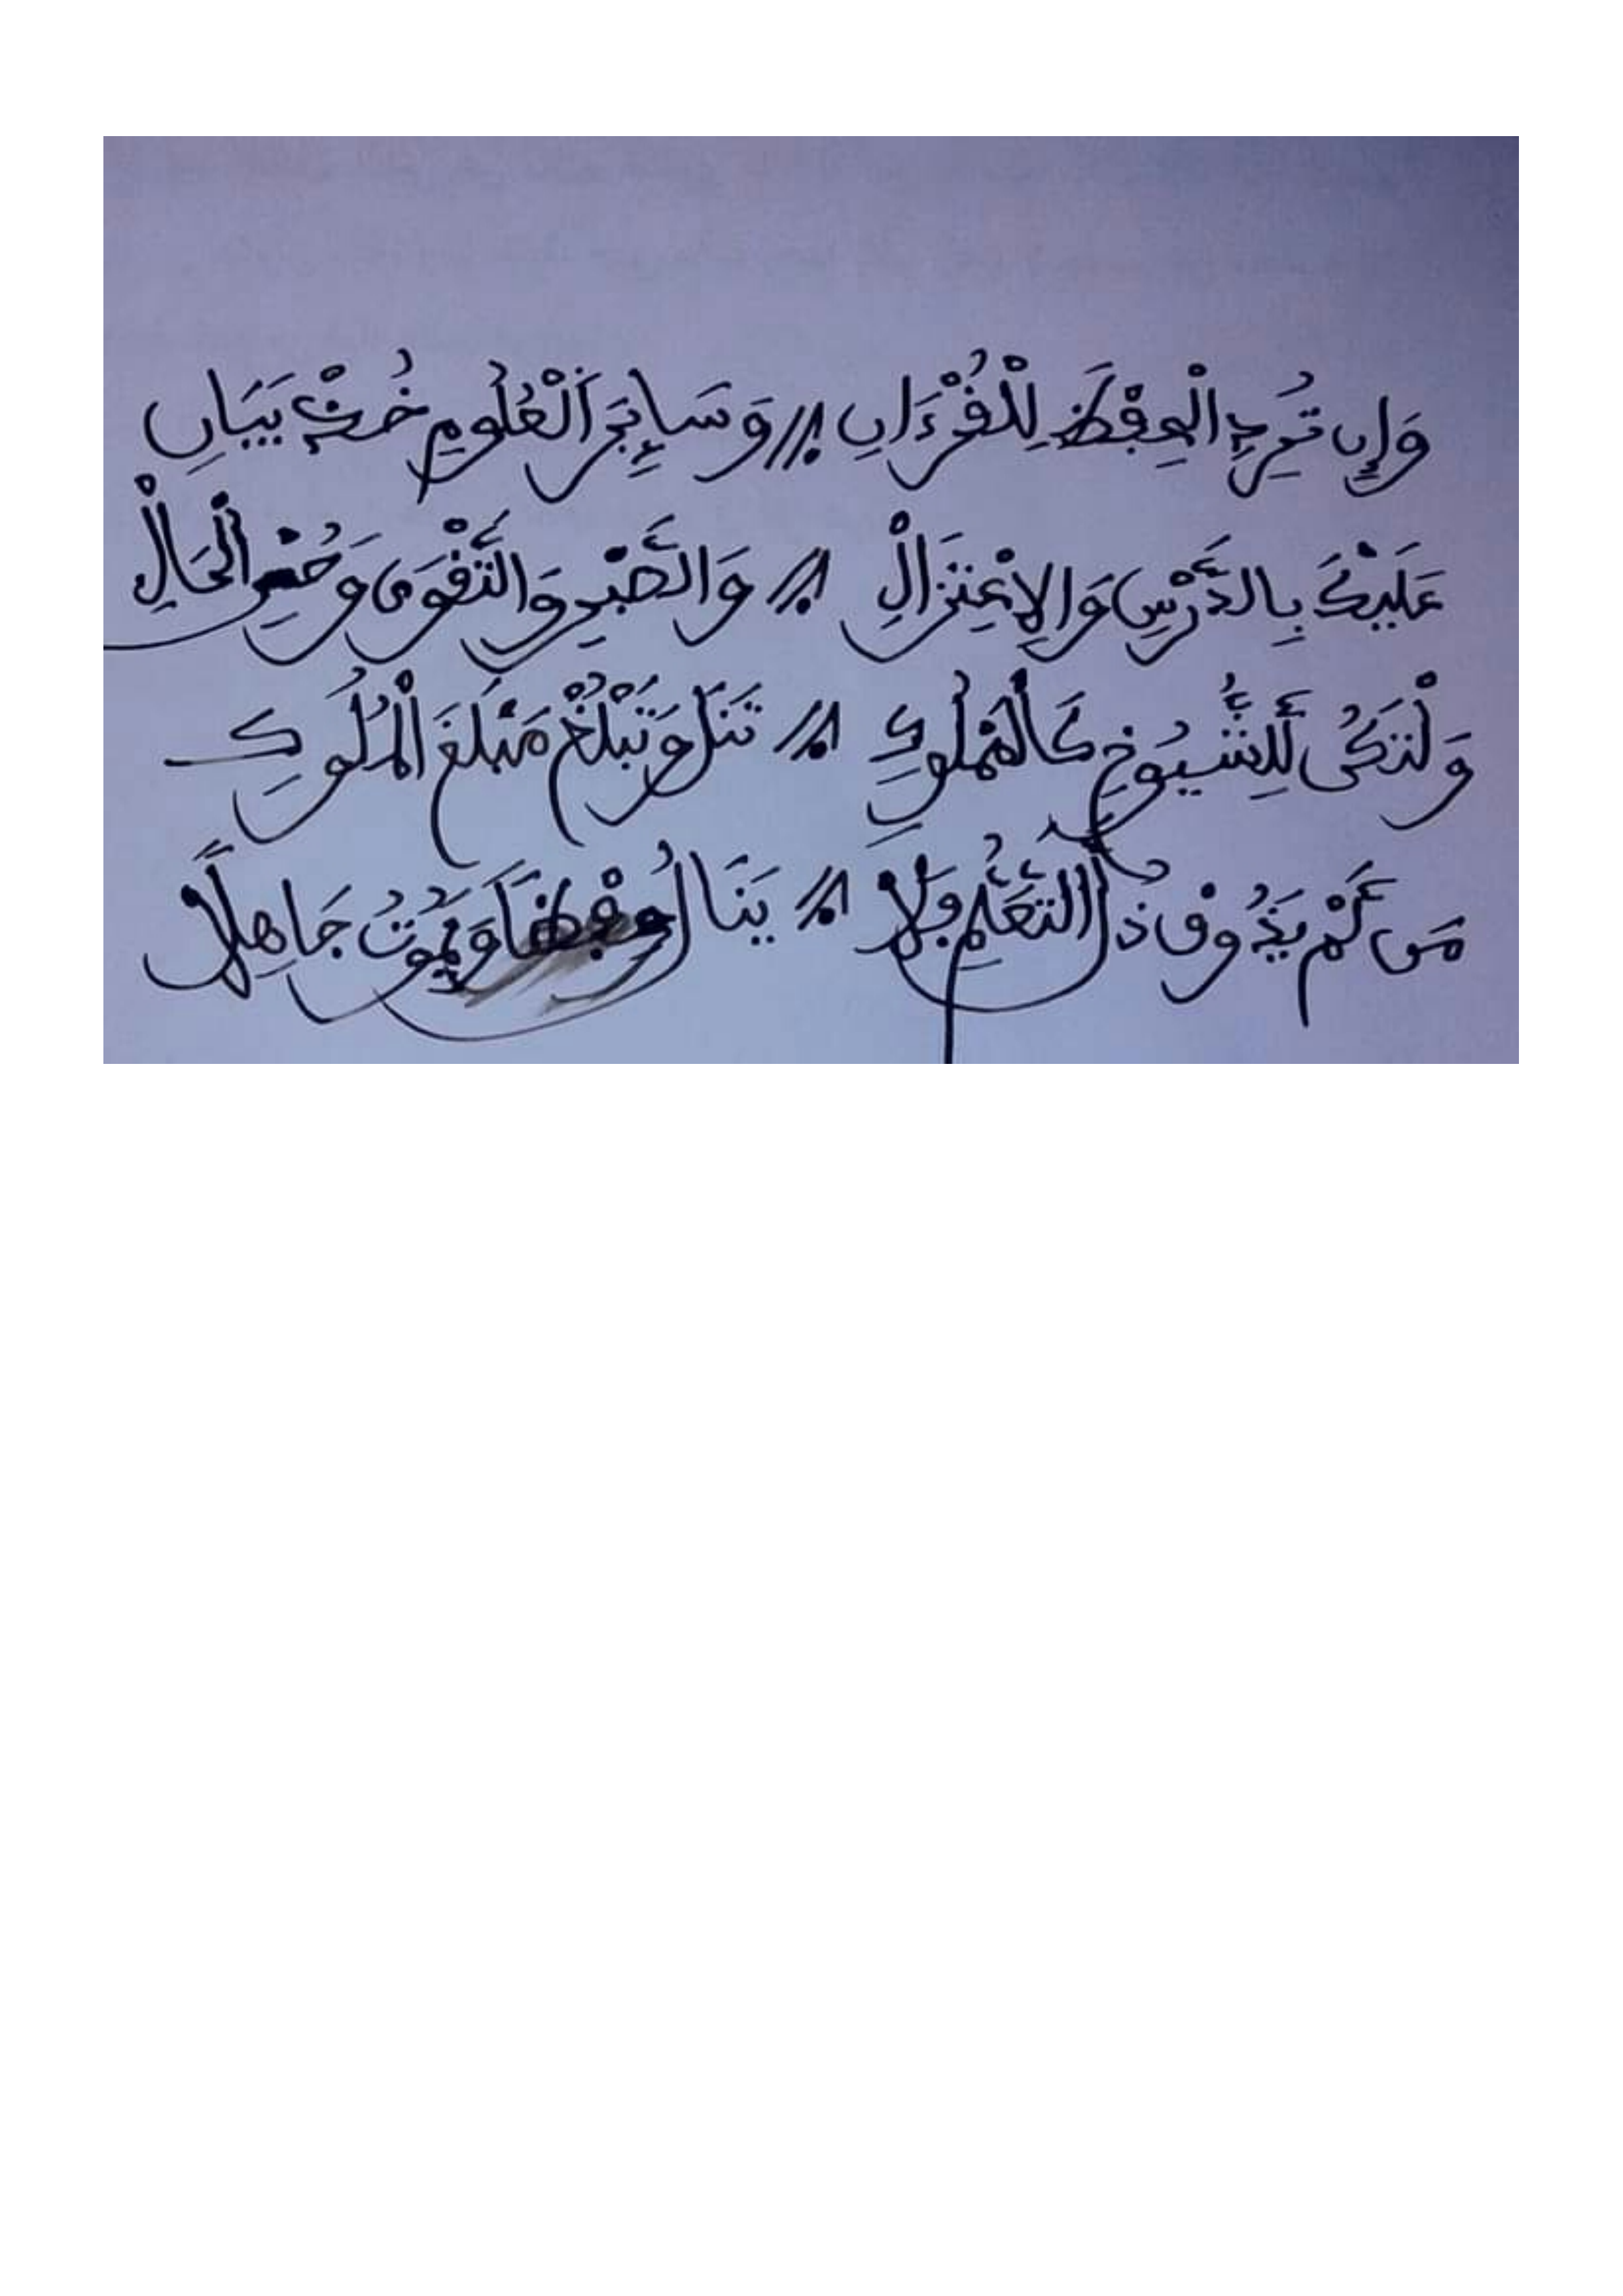 وَإِن تُرِدِ الْحِفْظَ لِلْقُرْءَانِ // وَسَائِرَ الْعُلُومِ خُذْ بَيَانِ
عَلَيْكَ بِالدَّرْسِ وَالِاعْتِزَالْ // وَالصَّبْرِ وَالتَّقْوَى وَحُسْنِ الْحَالْ
وَلْتَكُن لِّلشُّيُوخِ كَالْمَمْلُوكِ // تَنَلْ وَتَبْلُغْ مَبْلَغَ الْمُلُوكِ
مَن لَّمْ يَذُوقْ ذُلَّ التَّعَلُّمِ فَلَا // يَنَالُ حِفْظًا وَيَمُوتُ جَاهِلًا